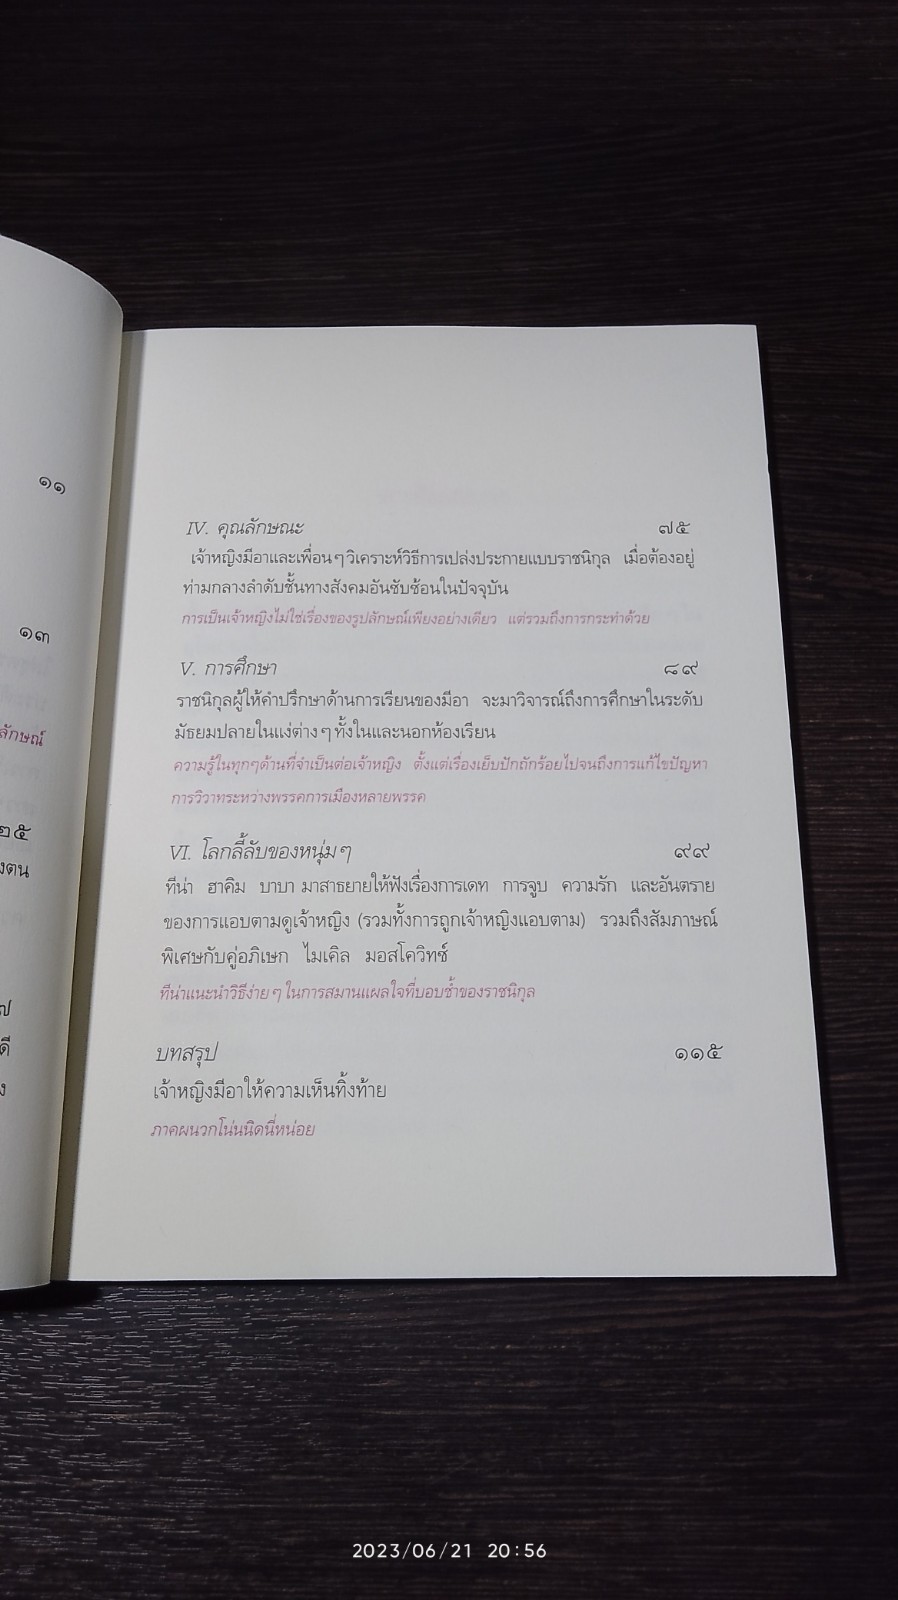 ๑๑
๑๓
ลักษณ์
๒๕
IV. คุณลักษณะ ๗๕
เจ้าหญิงมีอาและเพื่อนๆวิเคราะห์วิธีการเปล่งประกายแบบราชนิกุล เมื่อต้องอยู่
ท่ามกลางลำดับชั้นทางสังคมอันซับซ้อนในปัจจุบัน
การเป็นเจ้าหญิงไม่ใช่เรื่องของรูปลักษณ์เพียงอย่างเดียว แต่รวมถึงการกระทำด้วย
V. การศึกษา ๘๙
ราชนิกุลผู้ให้คำปรึกษาด้านการเรียนของมีอา จะมาวิจารณ์ถึงการศึกษาในระดับ
มัธยมปลายในแง่ต่างๆ ทั้งในและนอกห้องเรียน
ความรู้ในทุกๆด้านที่จำเป็นต่อเจ้าหญิง ตั้งแต่เรื่องเย็บปักถักร้อยไปจนถึงการแก้ไขปัญหา
การวิวาทระหว่างพรรคการเมืองหลายพรรค
VI. โลกลี้ลับของหนุ่มๆ ๙๙
ทีน่า ฮาคิม บาบา มาสาธยายให้ฟังเรื่องการเดท การจูบ ความรัก และอันตราย
ของการแอบตามดูเจ้าหญิง (รวมทั้งการถูกเจ้าหญิงแอบตาม) รวมถึงสัมภาษณ์
พิเศษกับคู่อภิเษก ไมเคิล มอสโควิทซ์
ทีน่าแนะนำวิธีง่ายๆ ในการสมานแผลใจที่บอบช้ำของราชนิกุล
บทสรุป ๑๑๕
เจ้าหญิงมีอาให้ความเห็นทิ้งท้าย
ภาคผนวกโน่นนิดนี่หน่อย
2023/06/21 20:56